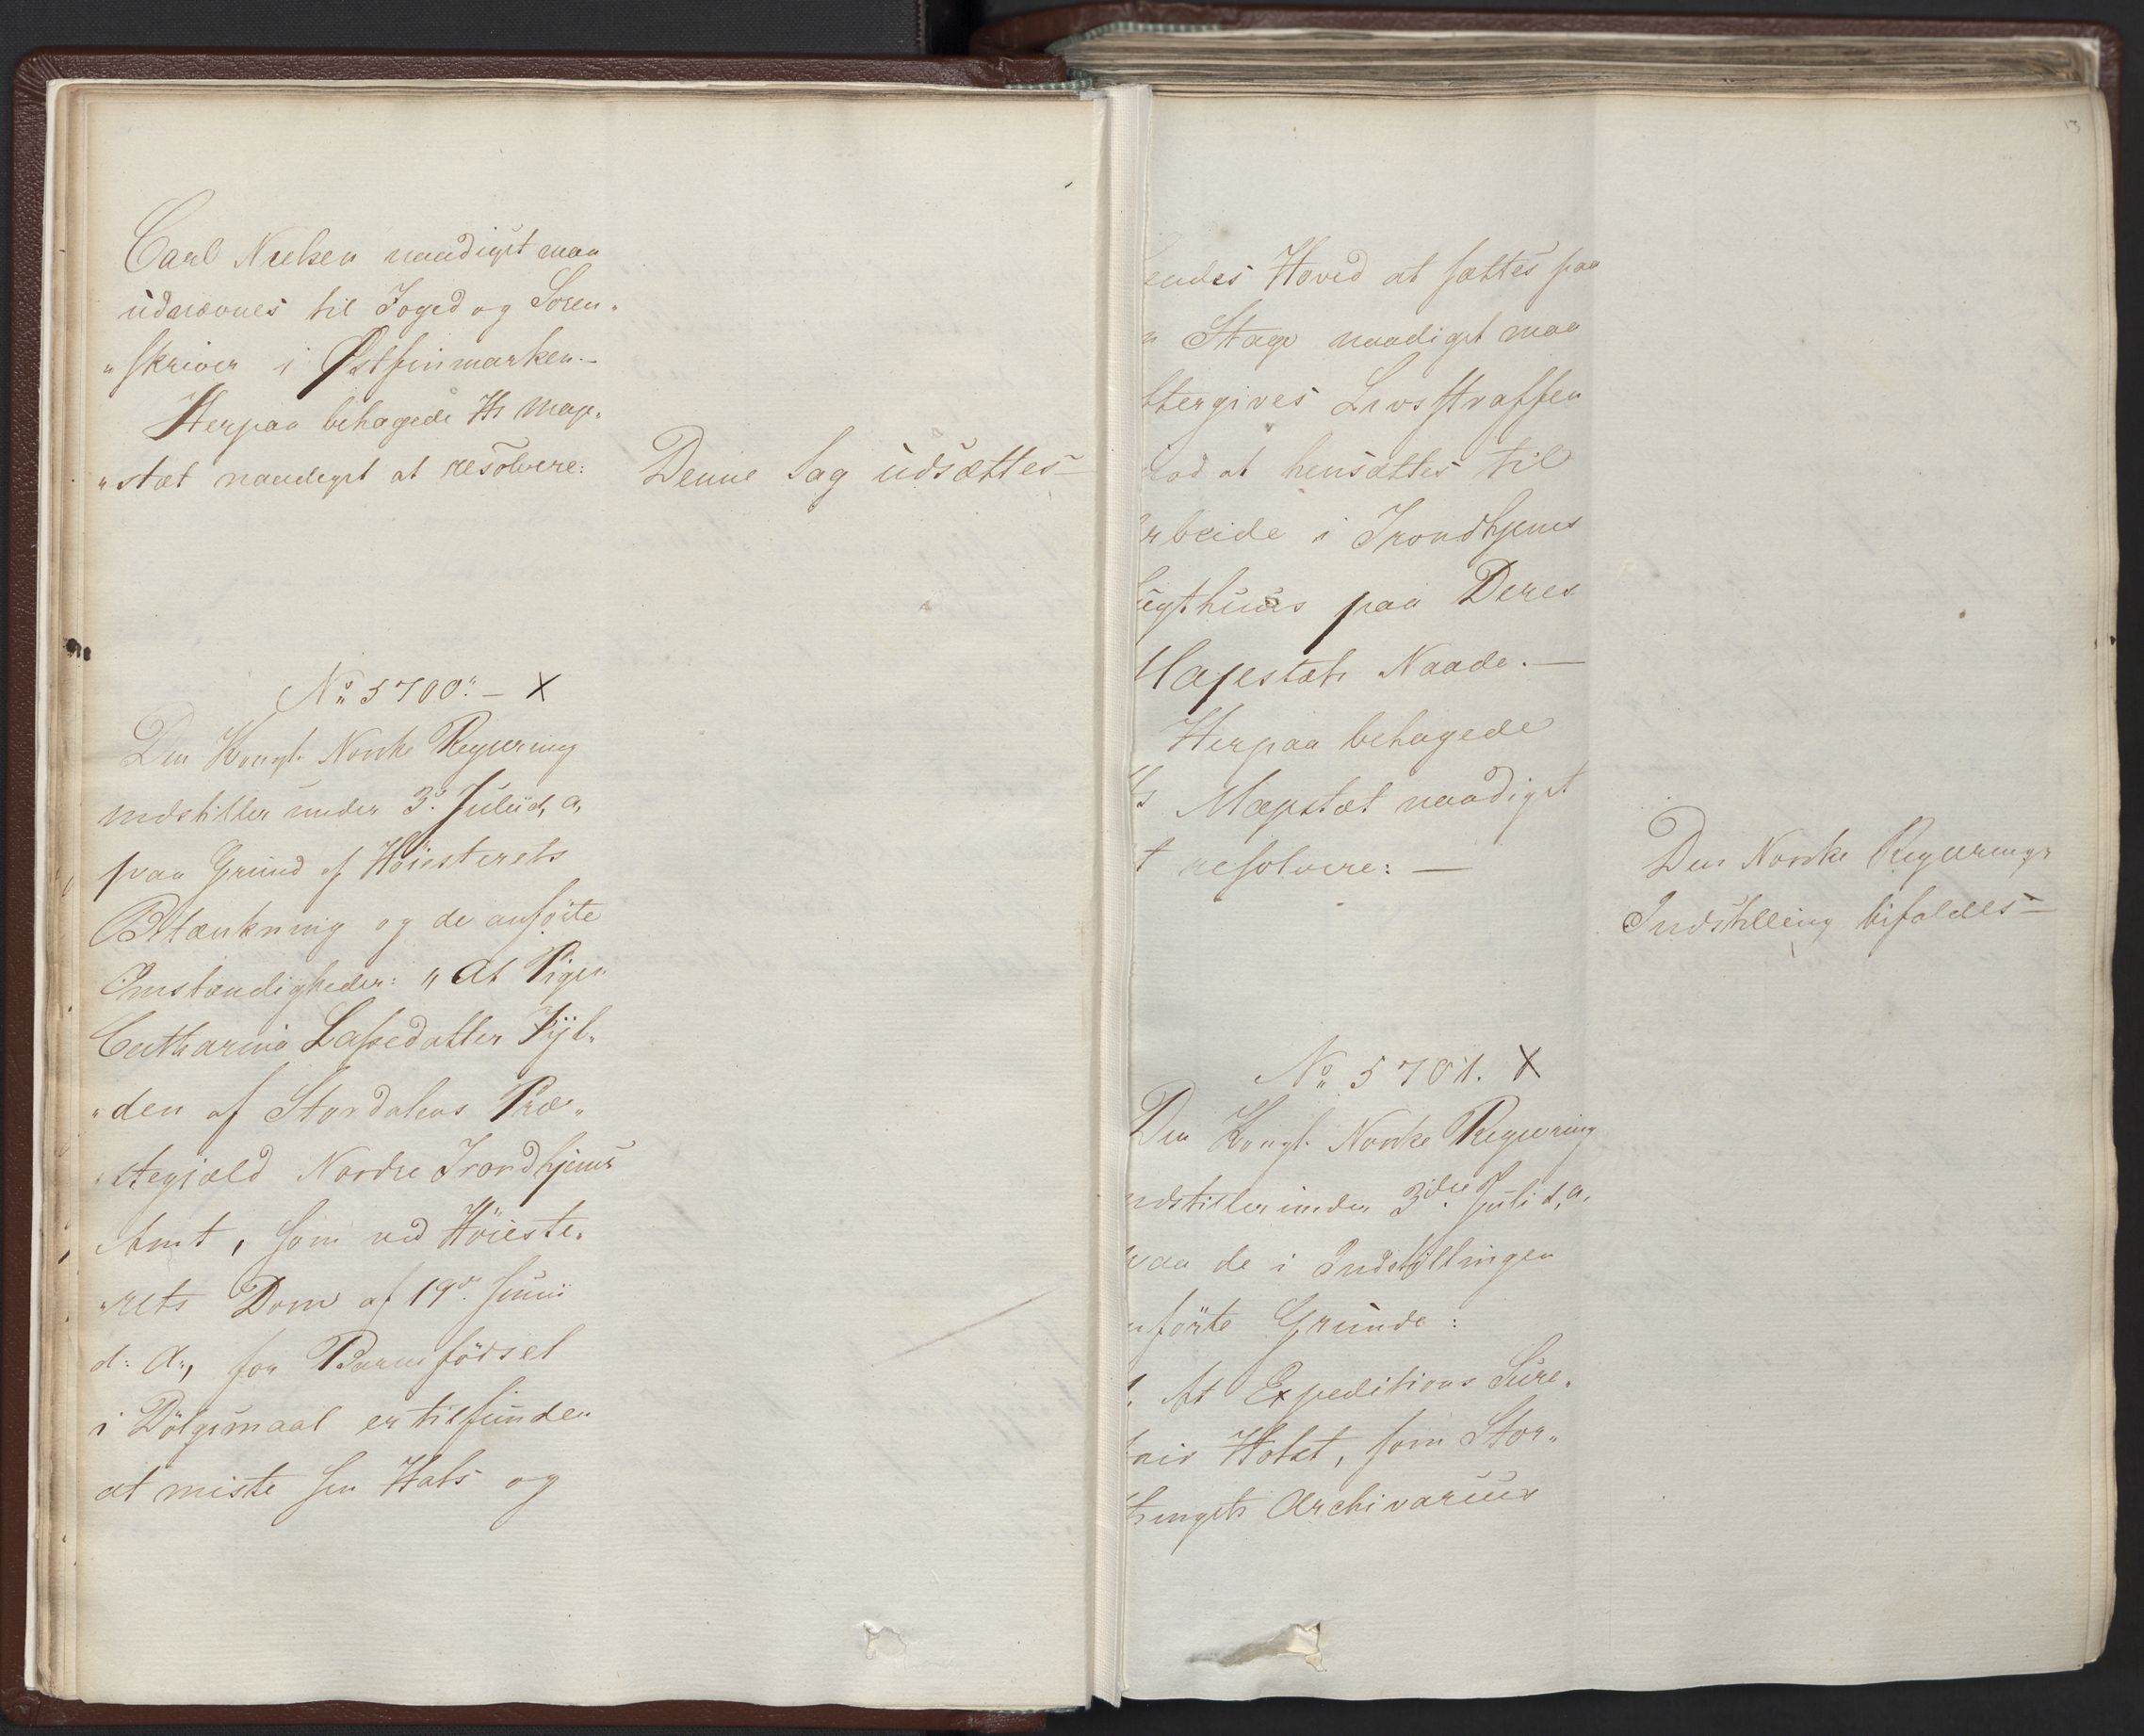 Carl Nielsen naadigst maa
udnævnes til Foged og Soren„
„skriver i Østfinmarken.—
Herpaa behagede Hs Maje„
„stæt naadigst at resolvere:
Denne Sag udsættes—
No 5700. — X
Den Kongl. Norske Regjering
indstiller under 3d. Julii d, a,
paa Grund af Höiesterets
Betænkning og de anförte
Omstændigheder: „At Pigen
Catharina Lassedatter
„den af Stordalens Præ„
„stegjæld Nordre Trondhjems
Amt, som ved Höieste„
„rets Dom af 19de. Junii
d: A:, for Barnefödsel
i Dölgsmaal er tilfunden
at miste sin Hals og
13
endes Hoved at sættes paa
n Stage naadigst maa
ftergives Livsstraffen
mod at hensættes til
rbeide i Trondhjems
ugthuus paa Deres
Majestæts Naade.—
Herpaa behagede
Hs Majestæt naadigst
t resolvere: —
Den Norske Regjerings
Indstilling bifaldes—
No 5701. X
Den Kongl. Norske Regjering
ndstiller under 3die Juli d, a,
paa de i Indstillingen
nförte Grunde:
„At Expeditions Secre„
tair Holst, som Stor„
thingets Archivarius